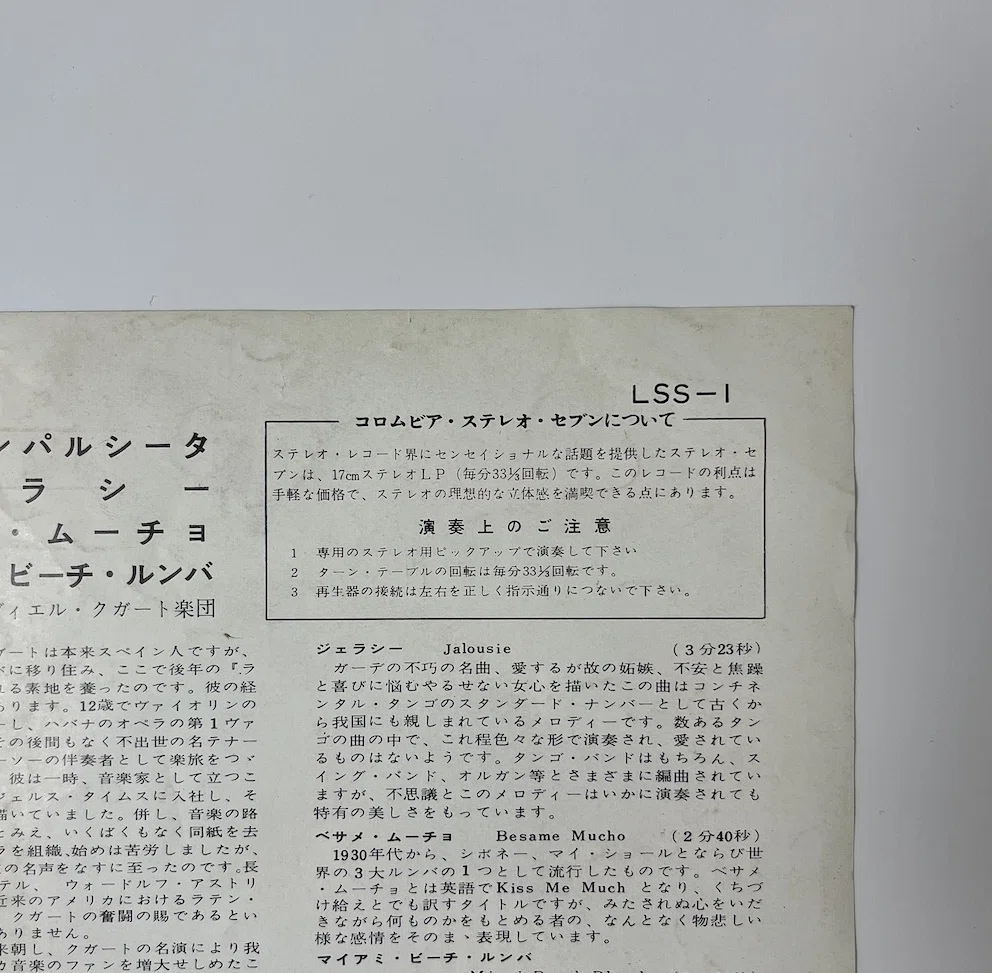 LSS-1
ンパルシータ
ラシー
・ムーチョ
ビーチ・ルンバ
ヴィエル・クガート楽団
コロムビア・ステレオ・セブンについて
ステレオ・レコード界にセンセイショナルな話題を提供したステレオ・セ
ブンは、17cmステレオLP（毎分33⅓回転）です。このレコードの利点は
手軽な価格で、ステレオの理想的な立体感を満喫できる点にあります。
演奏上のご注意
1 専用のステレオ用ピックアップで演奏して下さい
2 ターン・テーブルの回転は毎分33⅓回転です。
3 再生器の接続は左右を正しく指示通りにつないで下さい。
ガートは本来スペイン人ですが、
に移り住み、ここで後年の『ラ
れる素地を養ったのです。彼の経
ります。12歳でヴァイオリンの
ーし、ハバナのオペラの第1ヴァ
その後間もなく不出世の名テナー
ーソーの伴奏者として楽旅をつゞ
彼は一時、音楽家として立つこ
ジェルス・タイムスに入社し、そ
描いていました。併し、音楽の路
とみえ、いくばくもなく同紙を去
ラを組織、始めは苦労しましたが、
の名声をなすに至ったのです。長
テル、 ウォードルフ・アストリ
近来のアメリカにおけるラテン・
クガートの奮闘の賜であるとい
ありません。
来朝し、クガートの名演により我
カ音楽のファンを増大せしめたこ
ジェラシー Jalousie （3分23秒）
ガーデの不巧の名曲、愛するが故の妬嫉、不安と焦躁
と喜びに悩むやるせない女心を描いたこの曲はコンチネ
ンタル・タンゴのスタンダード・ナンバーとして古くか
ら我国にも親しまれているメロディーです。数あるタン
ゴの曲の中で、これ程色々な形で演奏され、愛されてい
るものはないようです。タンゴ・バンドはもちろん、ス
イング・バンド、オルガン等とさまざまに編曲されてい
ますが、不思議とこのメロディーはいかに演奏されても
特有の美しさをもっています。
ベサメ・ムーチョ Besame Mucho （2分40秒）
1930年代から、シボネー、マイ・ショールとならび世
界の3大ルンバの1つとして流行したものです。ベサメ
・ムーチョとは英語でKiss Me Much となり、くちづ
け給えとでも訳すタイトルですが、みたされぬ心をいだ
きながら何ものかをもとめる者の、なんとなく物悲しい
様な感情をそのまゝ表現しています。
マイアミ・ビーチ・ルンバ